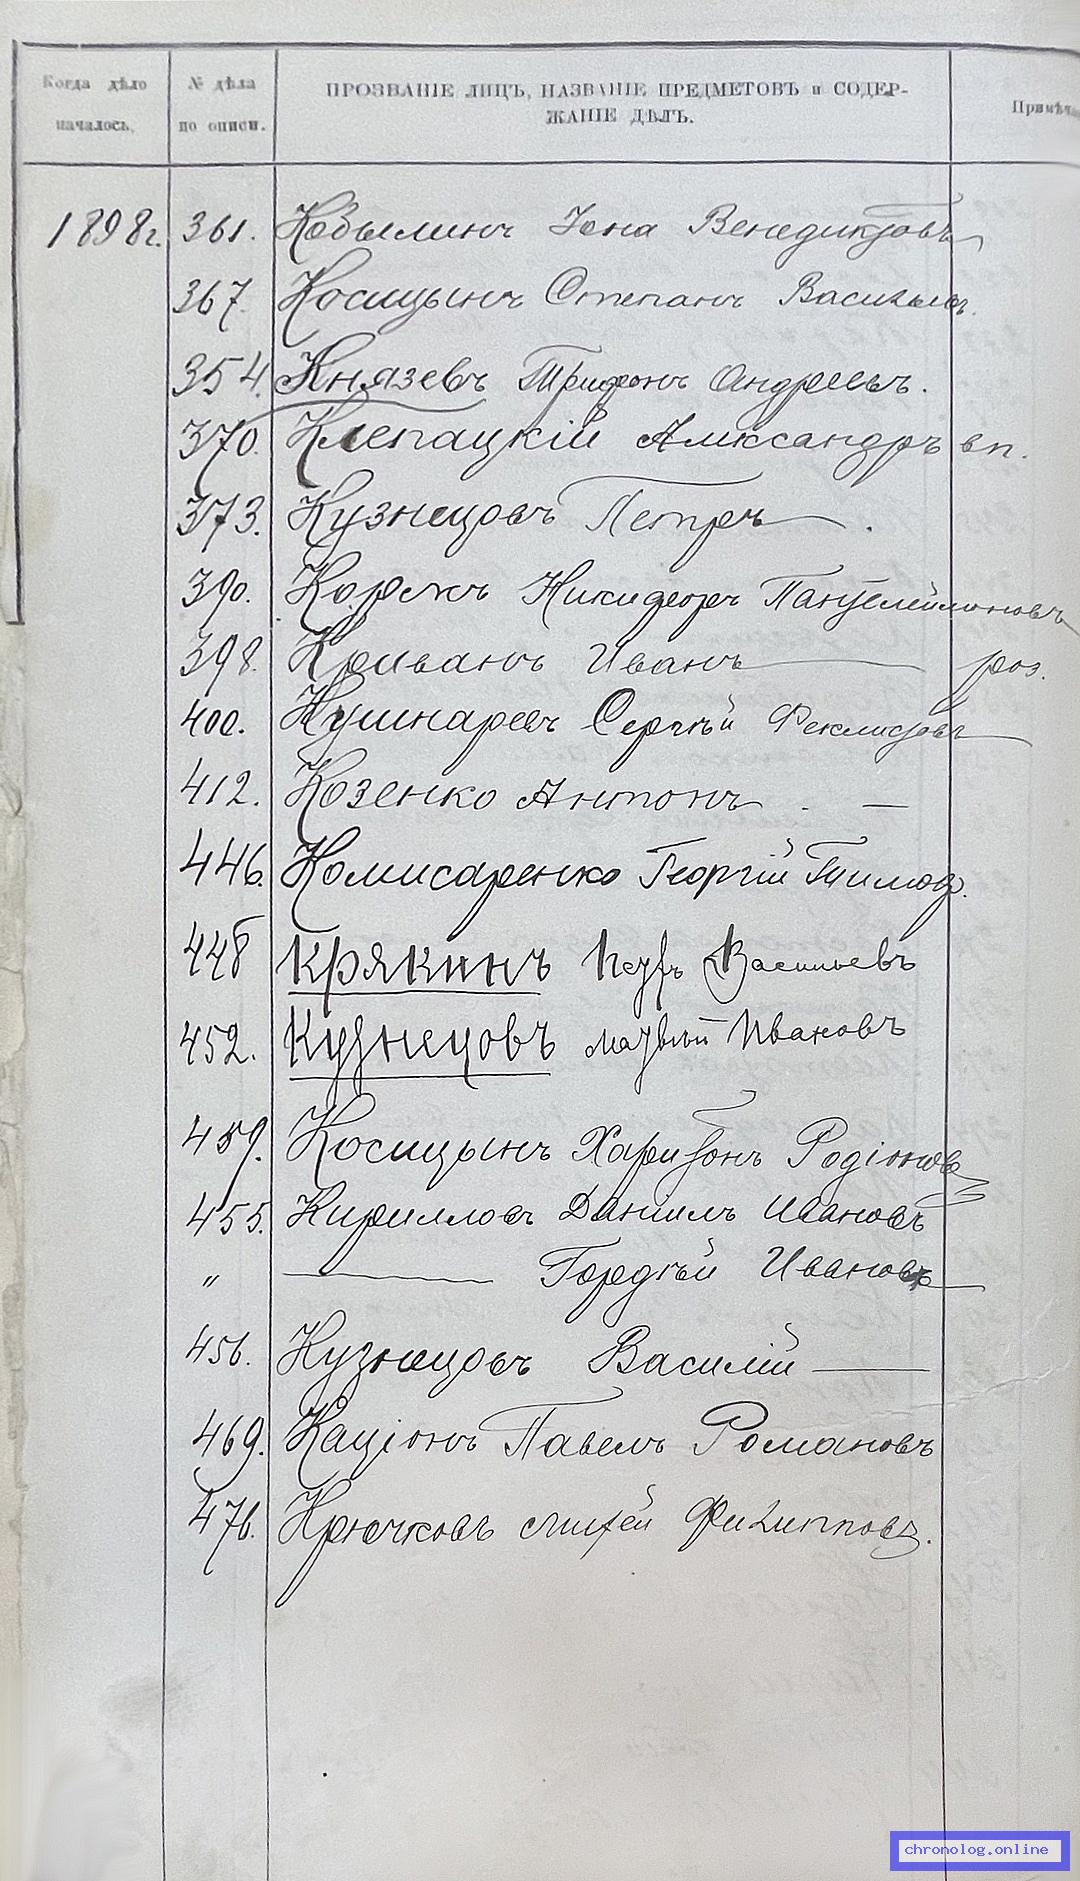 Когда дѣло началось.
№ дѣла по описи.
ПРОЗВАНІЕ ЛИЦЪ, НАЗВАНІЕ ПРЕДМЕТОВЪ и СОДЕР-
ЖАНІЕ ДѢЛЪ.
Примѣча
1898г. 361. Кобылинъ Іона Венедиктовъ
367. Косицынъ Степанъ Васильев.
354. Князевъ Трифонъ Андреевъ.
370. Клепацкій Александръ вп.
373. Кузнецовъ Петръ — .
390. Коржъ Никифоръ Пантелеймоновъ
398. Криванъ Иванъ — роз.
400. Кушнаревъ Сергѣй Феклистовъ —
412. Козенко Антонъ . —
446. Комисаренко Георгій Тимоф.
448 Крякинъ Петръ Васильевъ
452. Кузнецовъ Матвѣй Ивановъ
459. Косицынъ Харитонъ Родіонов
455. Кириллов Даниилъ Ивановъ
" — Гордѣй Ивановъ —
456. Кузнецовъ Василій —
469. Каціонъ Павелъ Романовъ
476. Крючковъ Михей Филипповъ.
chronolog.online